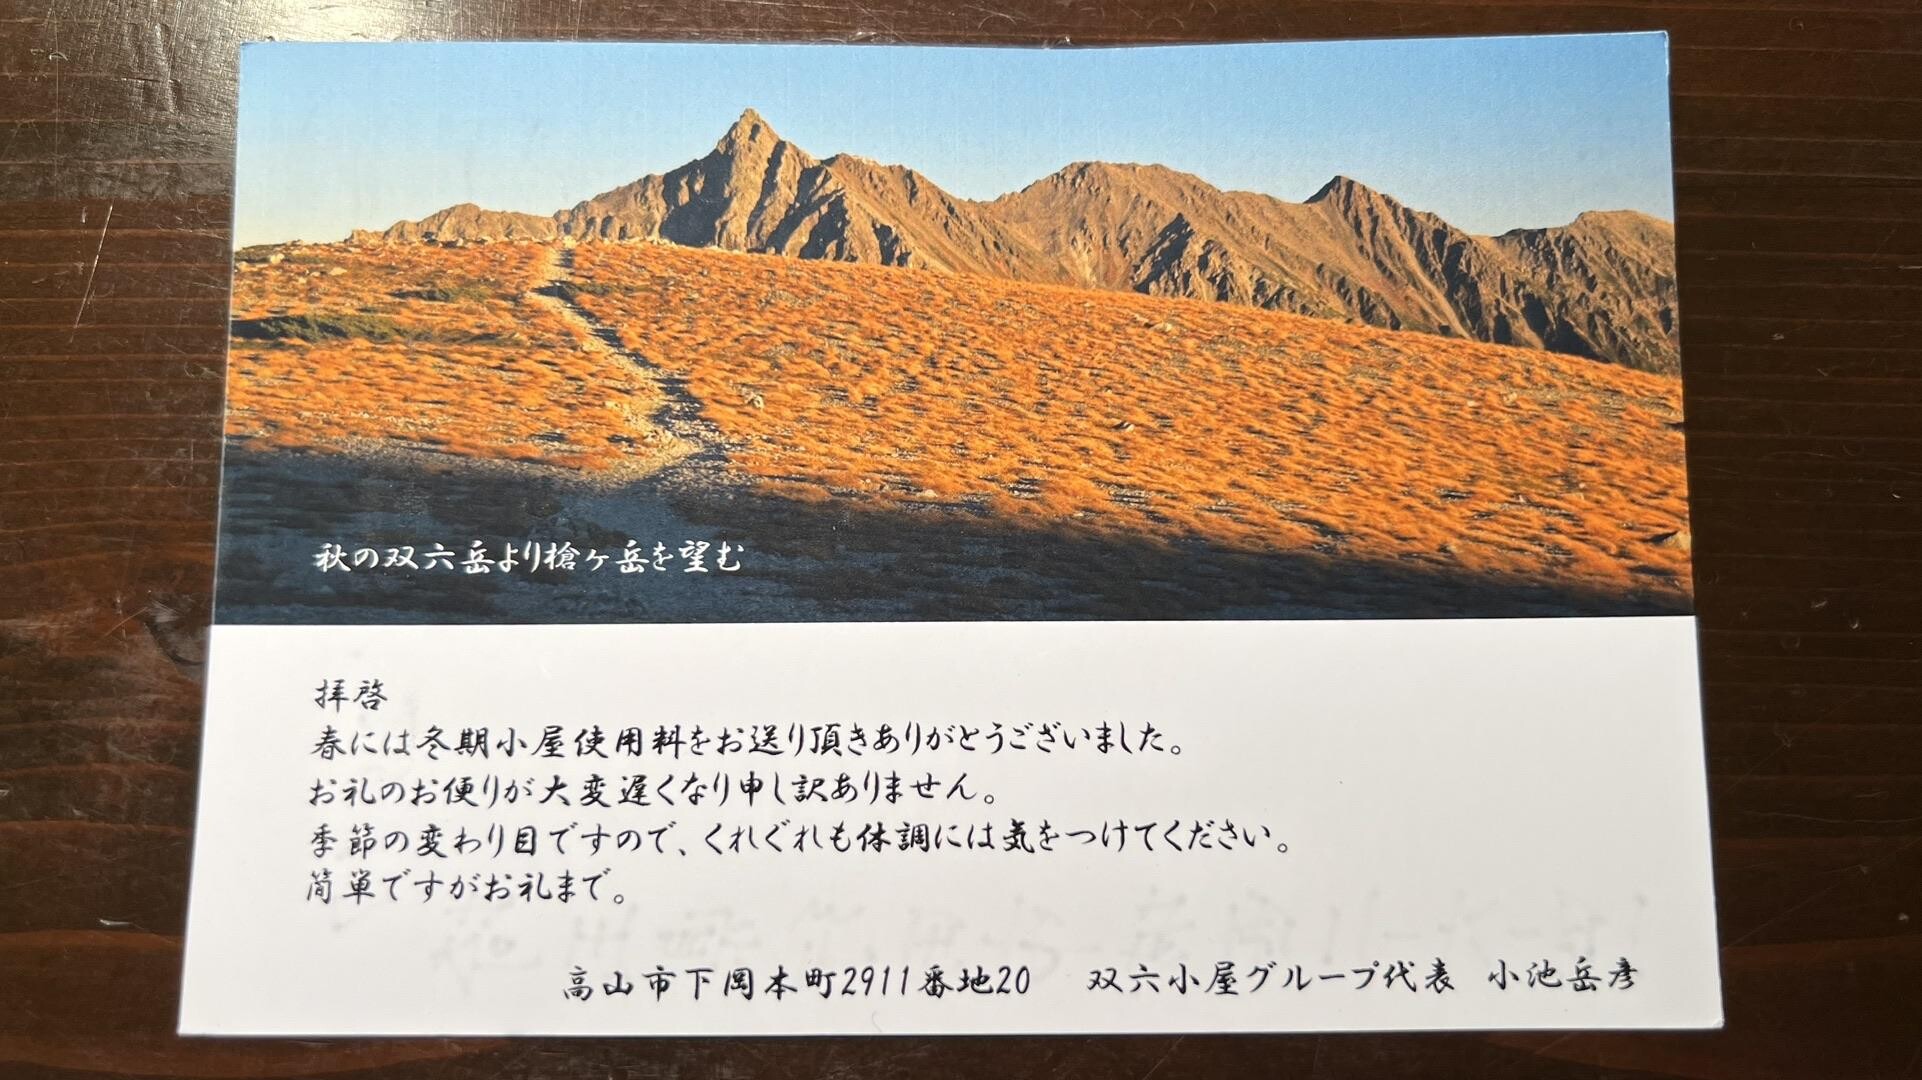 秋の双六岳より槍ヶ岳を望む
拝啓
春には冬期小屋使用料をお送り頂きありがとうございました。
お礼のお便りが大変遅くなり申し訳ありません。
季節の変わり目ですので、くれぐれも体調には気をつけてください。
簡単ですがお礼まで。
高山市下岡本町2911番地20　双六小屋グループ代表　小池岳彦